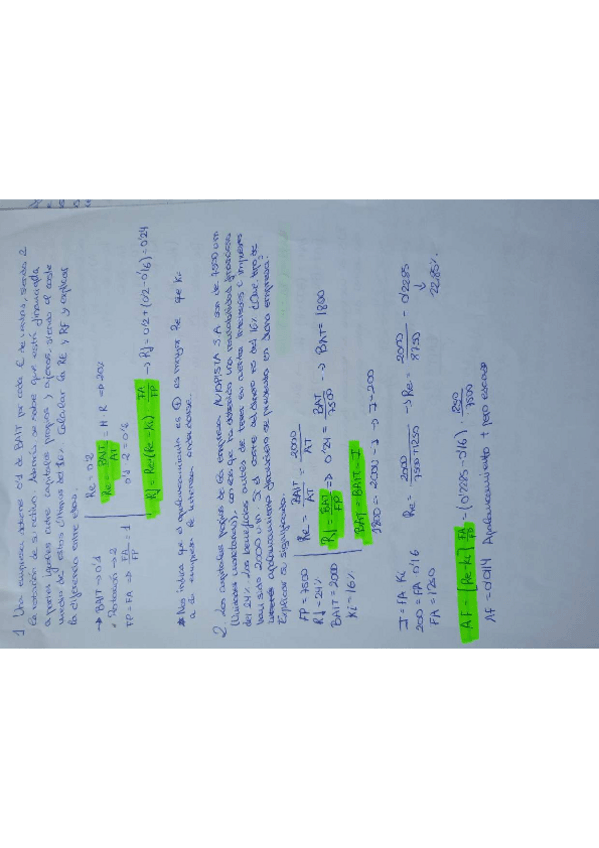 1 Una empresa obtiene 0'1 de BAIT por cada € de ventas, siendo 2
la rotación de su activo. Además, se sabe que está financiada
a partes iguales entre capitales propios y ajenos, siendo el coste
medio de estos últimos del Calcular la RE y RF y explicar
la diferencia entre ellas.
→ BAIT → 0'1
• Rotación → 2
FP = FA ⇒ FA/FP = 1
Re = 0'2
Re = BAIT/AT = M · R ⇒ 20%
0'1 · 2 = 0'2
Rf = Re + (Re - Ki) · FA/FP → Rf = 0'2 + (0'2 - 0'16) = 0'24
* Nos indica que el apalancamiento es ⊕ es mayor Re que Ki
a la empresa le interesa endeudarse.
2. Los capitales propios de la empresa AVOPISTA S.A son de 7500 u.m
(Unidades monetarias), con los que ha obtenido una rentabilidad financiera
del 24%. Los beneficios antes de tener en cuenta intereses e impuestos
han sido 2000 u.m. Si el coste del dinero es del 16% ¿Qué tipo de
apalancamiento financiero se presenta en dicha empresa?
Explicar su significado.
FP = 7500
Rf = 24%
BAIT = 2000
Ki = 16%
Re = BAIT/AT = 2000/AT
Rf = BAT/FP ⇒ 0'24 = BAT/7500 → BAT = 1800
BAT = BAIT - I
1800 = 2000 - I → I = 200
I = FA · Ki
200 = FA · 0'16
FA = 1250
Re = 2000/7500+1250 → Re = 2000/8750 = 0'2285
↓
22'85%
AF = (Re - Ki) FA/FP = (0'2285 - 0'16) · 1250/7500
AF = 0'0114 Apalancamiento + pero escaso